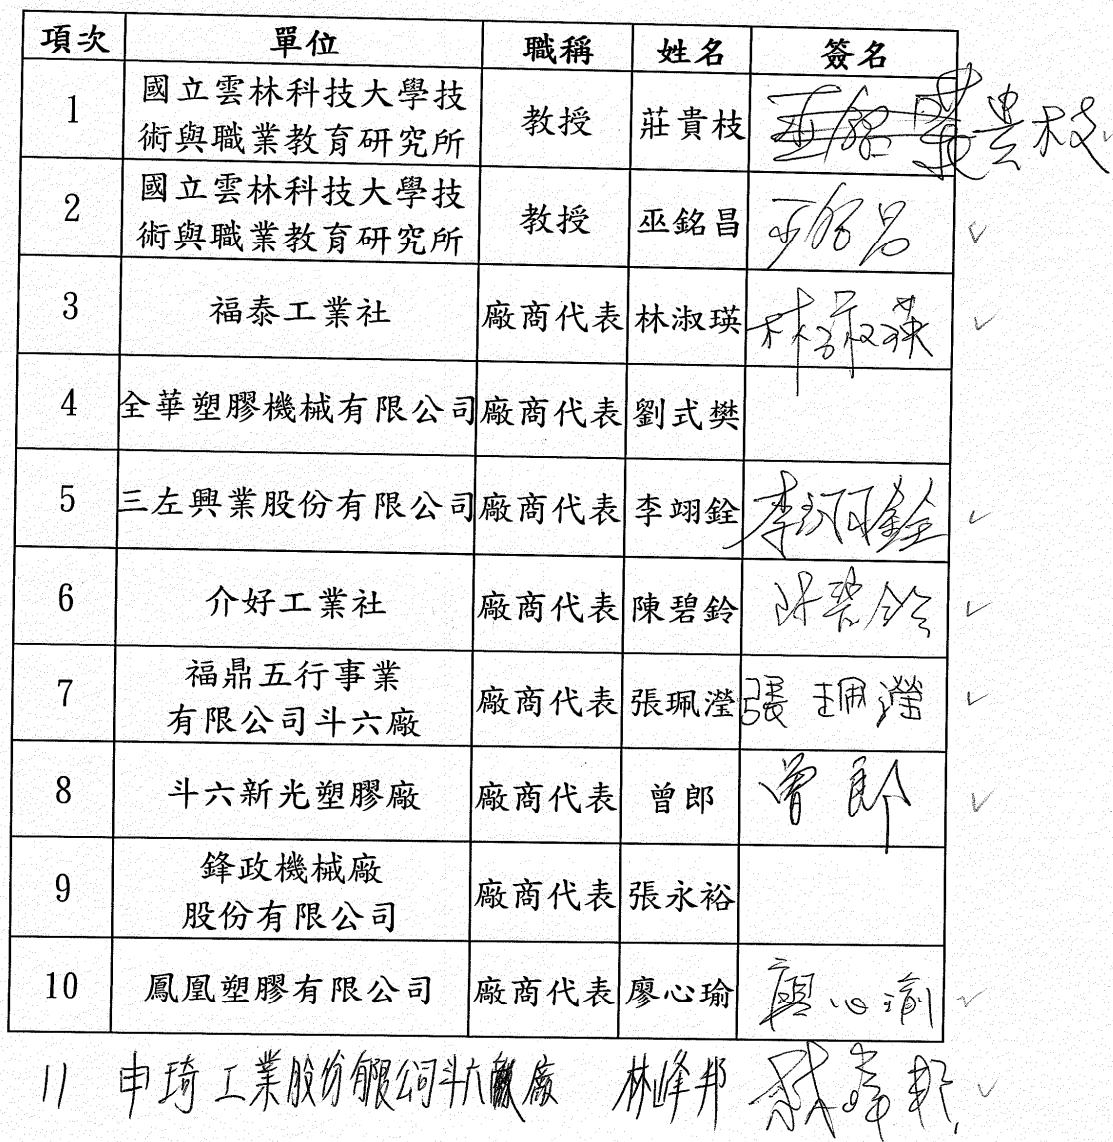 項次 單位 職稱 姓名 簽名
1 國立雲林科技大學技術與職業教育研究所 教授 莊貴枝 巫銘 莊貴枝
2 國立雲林科技大學技術與職業教育研究所 教授 巫銘昌 巫銘昌
3 福泰工業社 廠商代表 林淑瑛 林淑瑛
4 全華塑膠機械有限公司 廠商代表 劉式樊
5 三左興業股份有限公司 廠商代表 李翊銓 李翊銓
6 介好工業社 廠商代表 陳碧鈴 陳碧鈴
7 福鼎五行事業有限公司斗六廠 廠商代表 張珮瀅 張珮瀅
8 斗六新光塑膠廠 廠商代表 曾郎 曾郎
9 鋒政機械廠股份有限公司 廠商代表 張永裕
10 鳳凰塑膠有限公司 廠商代表 廖心瑜 廖心瑜
11 申琦工業股份有限公司斗六廠 林峰邦